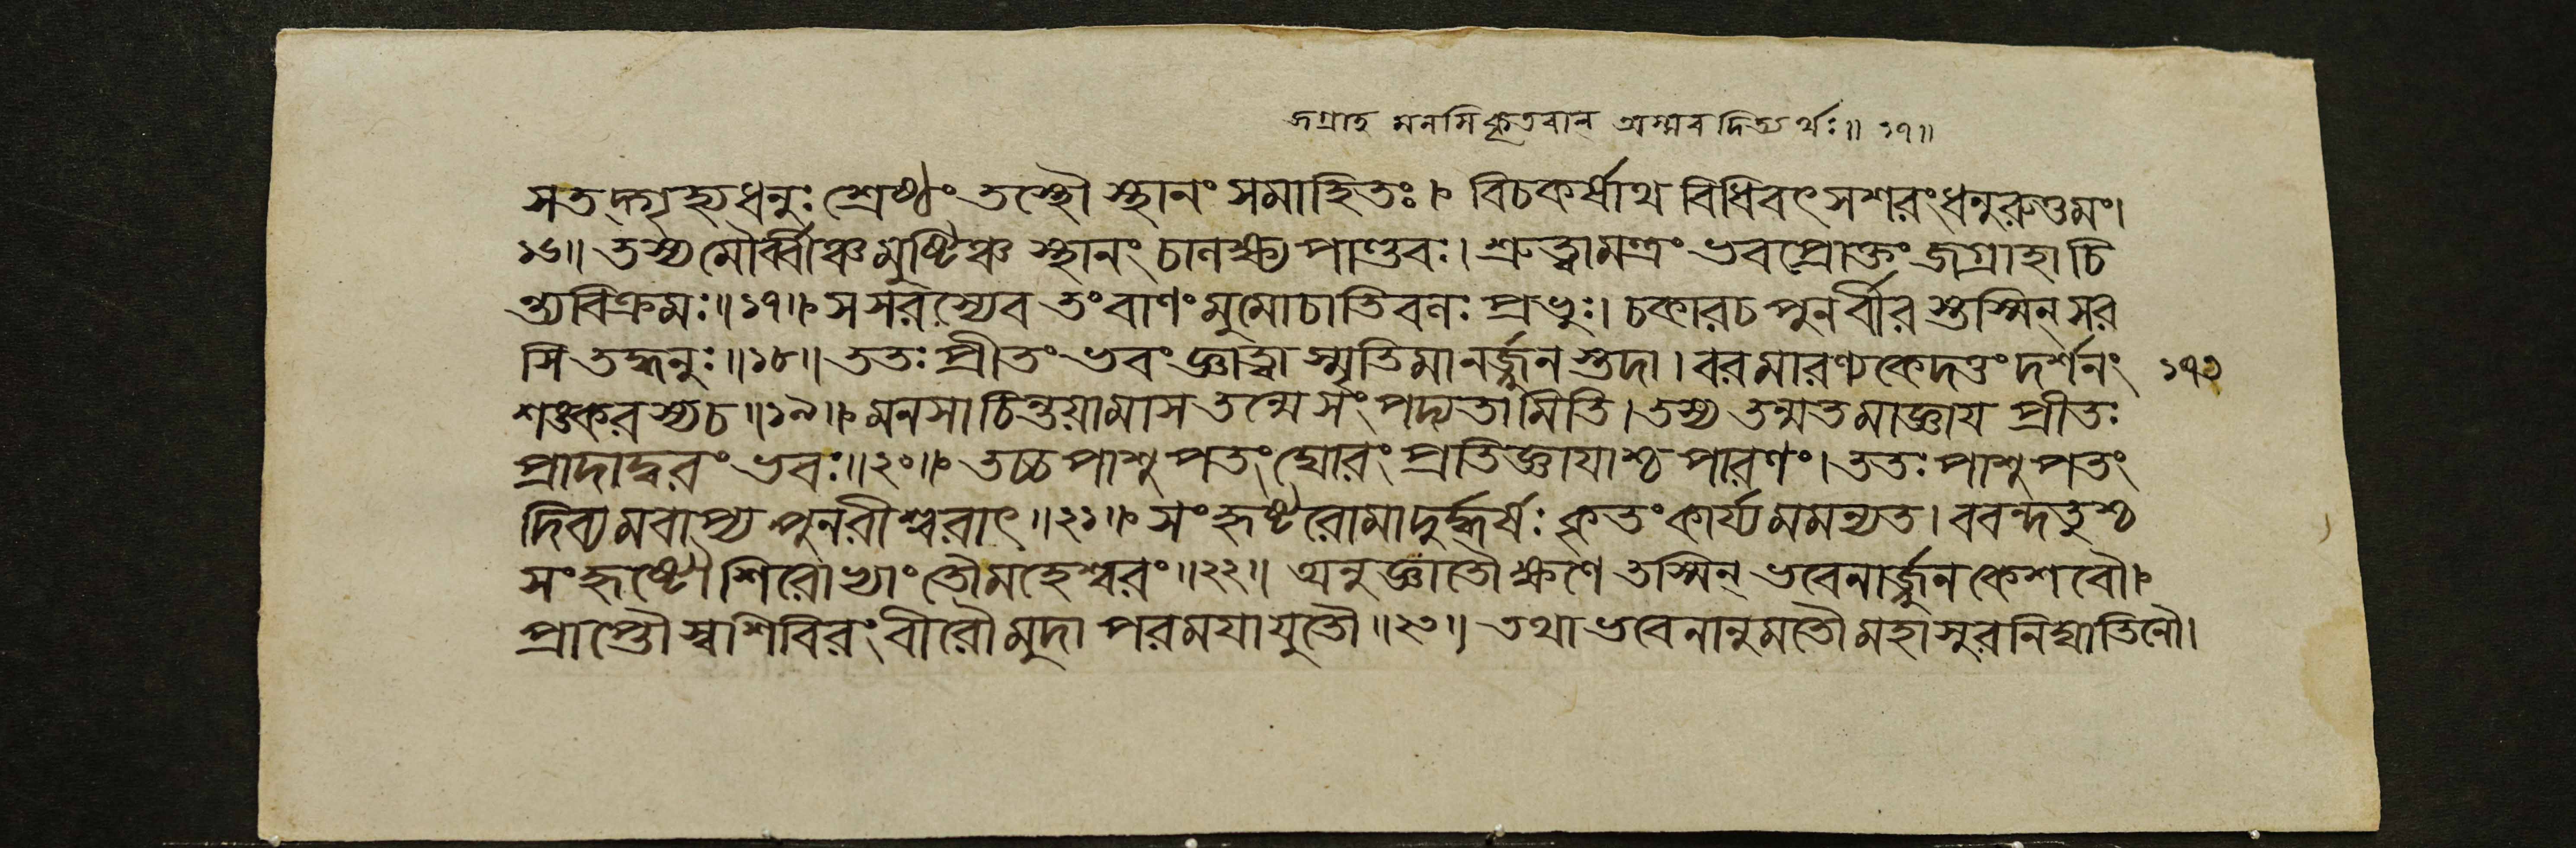 জগ্রাহ মনসি কৃতবান্ অস্মরদিত্যর্থঃ॥ ১৭॥
স তদ্গৃহ্য ধনুঃ শ্রেষ্ঠং তস্থৌ স্থানং সমাহিতঃ। বিচকর্ষাথ বিধিবৎ সশরং ধনুরুত্তমং।
১৬॥ তস্য মৌর্ব্বীঞ্চ মুষ্টিঞ্চ স্থানং চালক্ষ্য পাণ্ডবঃ। শ্রুত্বা মন্ত্রং ভবপ্রোক্তং জগ্রাহাচি
ন্ত্যবিক্রমঃ॥১৭॥ স সরস্যেব তং বাণং মুমোচাতিবলঃ প্রভুঃ। চকার চ পুনর্বীরস্তস্মিন্ সর
সি তদ্ধনুঃ॥১৮॥ ততঃ প্রীতং ভবং জ্ঞাত্বা স্মৃতিমানর্জ্জুনস্তদা। বরমারণ্যকে দত্তং দর্শনং ১৭৩
শঙ্করস্য চ॥১৯॥ মনসা চিন্তয়ামাস তন্মে সংপদ্যতামিতি। তস্য তন্মতমাজ্ঞায প্রীতঃ
প্রাদাদ্বরং ভবঃ॥২০॥ তচ্চ পাশুপতং ঘোরং প্রতিজ্ঞাযাশ্চ পারণং। ততঃ পাশুপতং
দিব্যমবাপ্য পুনরীশ্বরাৎ॥২১॥ সংহৃষ্টরোমা দুর্দ্ধর্ষঃ কৃতং কার্য্যমমন্যত। ববন্দতুশ্চ
সংহৃষ্টৌ শিরোভ্যাং তৌ মহেশ্বরং॥২২॥ অনুজ্ঞাতৌ ক্ষণে তস্মিন্ ভবেনার্জ্জুনকেশবৌ।
প্রাপ্তৌ স্বশিবিরং বীরৌ মুদা পরমযা যুতৌ॥২৩॥ তথা ভবেনানুমতৌ মহাসুরনিঘাতিনৌ।